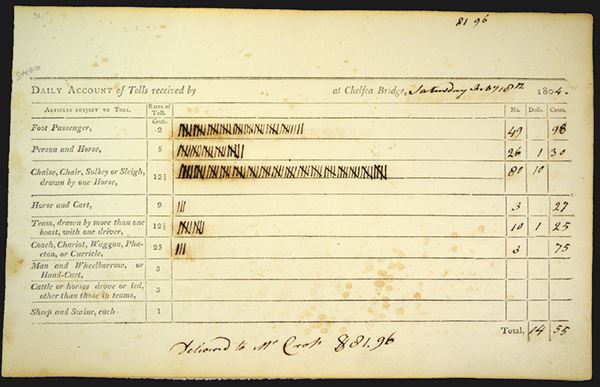 81 96
DAILY ACCOUNT of Tolls received by at Chelſea Bridge, Saturday 18th 1804.
ARTICLES SUBJECT TO TOLL. Rates of Toll. No. Dolls. Cents.
Cents.
Foot Passenger, 2 49 98
Person and Horse, 5 26 1 30
Chaise, Chair, Sulkey or Sleigh, drawn by one Horse, 12½ 80 10
Horse and Cart, 9 3 27
Team, drawn by more than one beast, with one driver, 12½ 10 1 25
Coach, Chariot, Waggon, Phaeton, or Curricle, 25 3 75
Man and Wheelbarrow, or Hand-Cart, 3
Cattle or horses drove or led, other than those in teams, 3
Sheep and Swine, each 1
Total, 14 55
Delivered to Mr $81.96